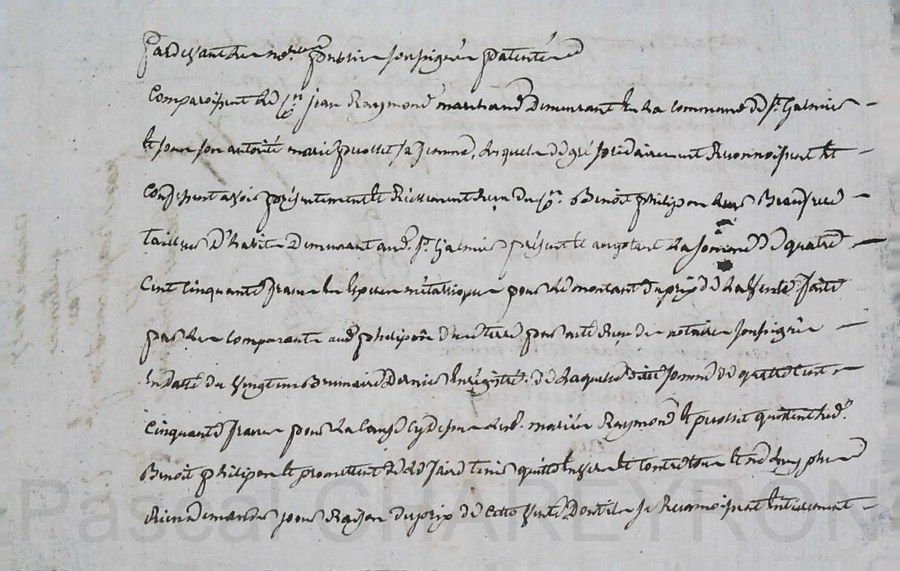 Pardevant le no.re public soussigné patenté
Comparoissent le Cen jean Raymond marchand demeurant en la commune de St Galmier
et sous son autorité marie presset sa femme, lesquels de gré solidairement Reconnoissent et
Confessent avoir présentement et Réellement Reçu du Cen Benoit philipon leur Beaufrere
tailleur d'habit demeurant aud. St Galmier présent et acceptant la somme de quatre
Cent cinquante francs en Espèces métallique pour le montant du prix de la Vente faitte
par les comparants aud philipon d'une terre par acte Reçu du notaire soussigné
En datte du vingt un Brumaire dernier Enrégistré. de laquelle ditte somme de quatre Cent
Cinquante francs pour la cause cy dessus lesd. mariés Raymond et pressset quittent led.
Benoit philipon et promettent de le faire tenir quitte Envers et Contre tous et ne luy plus
Rien demander pour Raison du prix de cette Vente Dont ils se Reconnoissent Entierement
Pascal CHAREYRON